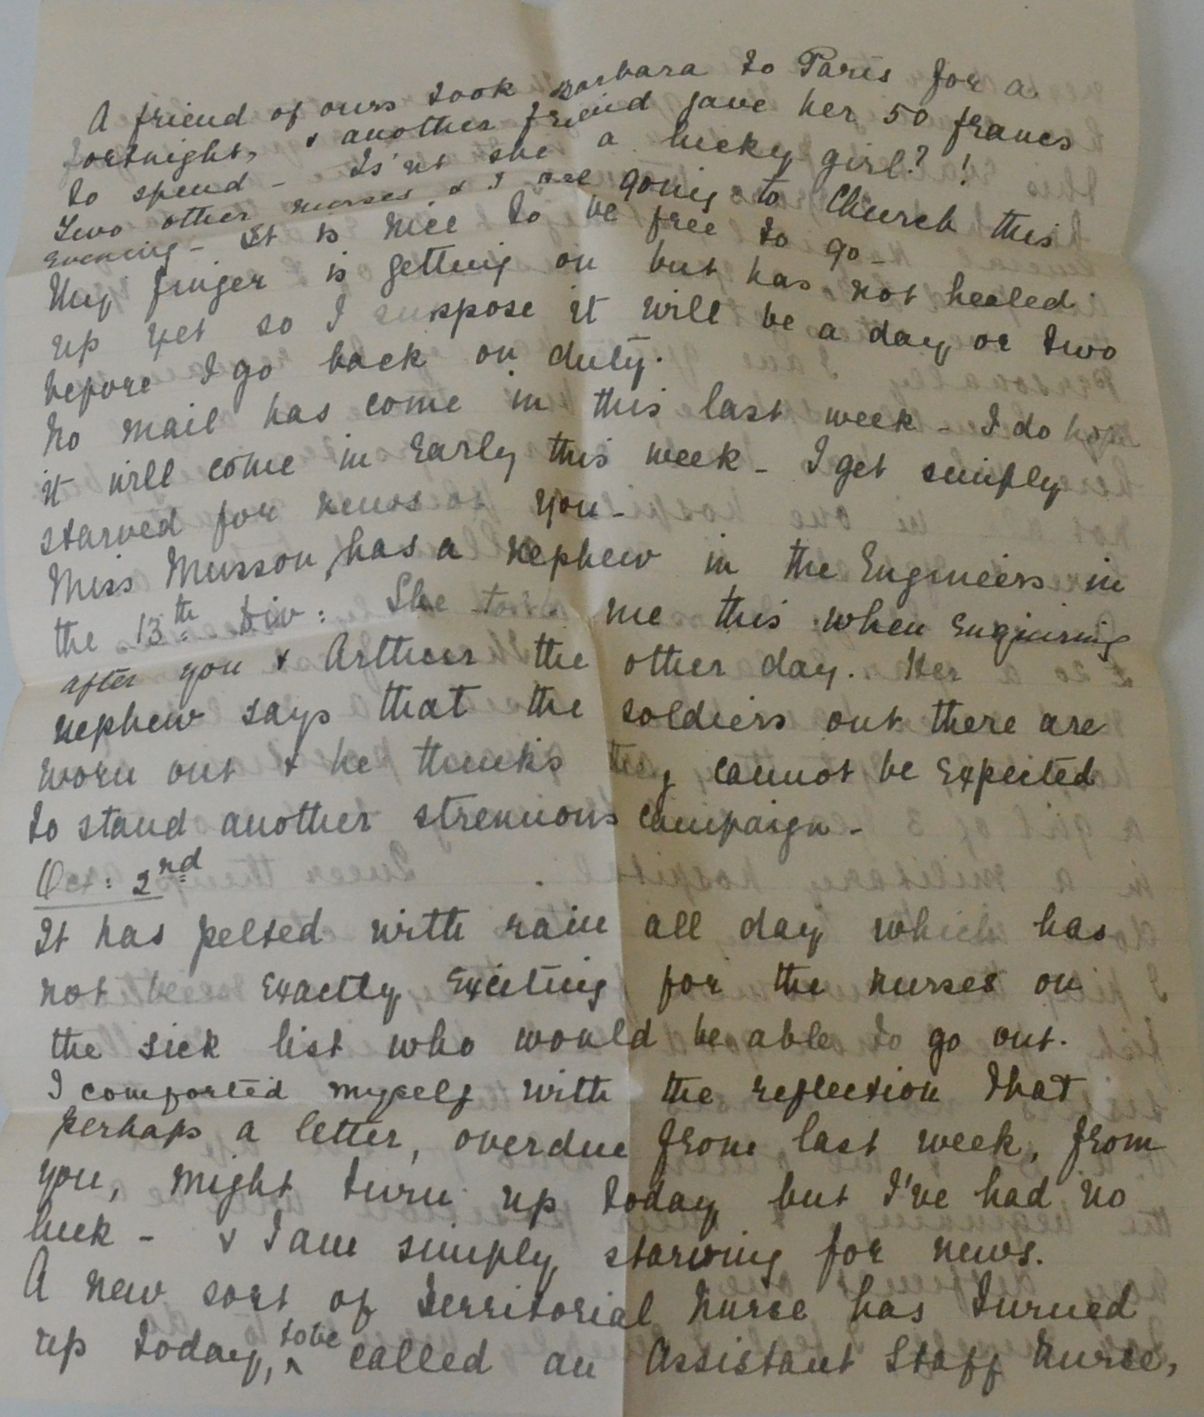 A friend of ours took Barbara to Paris for a
fortnight, & another friend gave her 50 francs
to spend - Is'nt she a lucky girl? !
Two other nurses & I are going to Church this
evening - It is nice to be free to go -
My finger is getting on but has not healed
up yet so I suppose it will be a day or two
before I go back on duty.
No mail has come in this last week - I do hope
it will come in early this week - I get simply
starved for news of you -
Miss Musson has a nephew in the Engineers in
the 13th Div: She told me this when enquiring
after you & Arthur the other day. Her
nephew says that the soldiers out there are
worn out & he thinks they cannot be expected
to stand another strenuous campaign -
Oct: 2nd
It has pelted with rain all day which has
not be exactly exciting for the nurses on
the sick list who would be able to go out.
I comforted myself with the reflection that
perhaps a letter, overdue from last week, from
you, might turn up today but I've had no
luck - & I am simply starving for news.
A new sort of Territorial nurse has turned
up today, to be called an Assistant Staff Nurse,